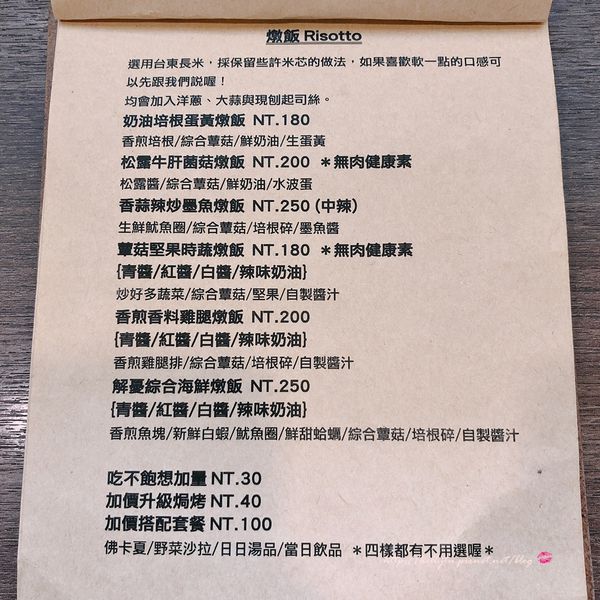 燉飯 Risotto
選用台東長米，採保留些許米芯的做法，如果喜歡軟一點的口感可
以先跟我們說喔！
均會加入洋蔥、大蒜與現刨起司絲。
奶油培根蛋黃燉飯 NT.180
香煎培根/綜合蕈菇/鮮奶油/生蛋黃
松露牛肝菌菇燉飯 NT.200 ＊無肉健康素
松露醬/綜合蕈菇/鮮奶油/水波蛋
香蒜辣炒墨魚燉飯 NT.250 (中辣)
生鮮魷魚圈/綜合蕈菇/培根碎/墨魚醬
蕈菇堅果時蔬燉飯 NT.180 ＊無肉健康素
{青醬/紅醬/白醬/辣味奶油}
炒好多蔬菜/綜合蕈菇/堅果/自製醬汁
香煎香料雞腿燉飯 NT.200
{青醬/紅醬/白醬/辣味奶油}
香煎雞腿排/綜合蕈菇/培根碎/自製醬汁
解憂綜合海鮮燉飯 NT.250
{青醬/紅醬/白醬/辣味奶油}
香煎魚塊/新鮮白蝦/魷魚圈/鮮甜蛤蠣/綜合蕈菇/培根碎/自製醬汁
吃不飽想加量 NT.30
加價升級焗烤 NT.40
加價搭配套餐 NT.100
佛卡夏/野菜沙拉/日日湯品/當日飲品 ＊四樣都有不用選喔＊